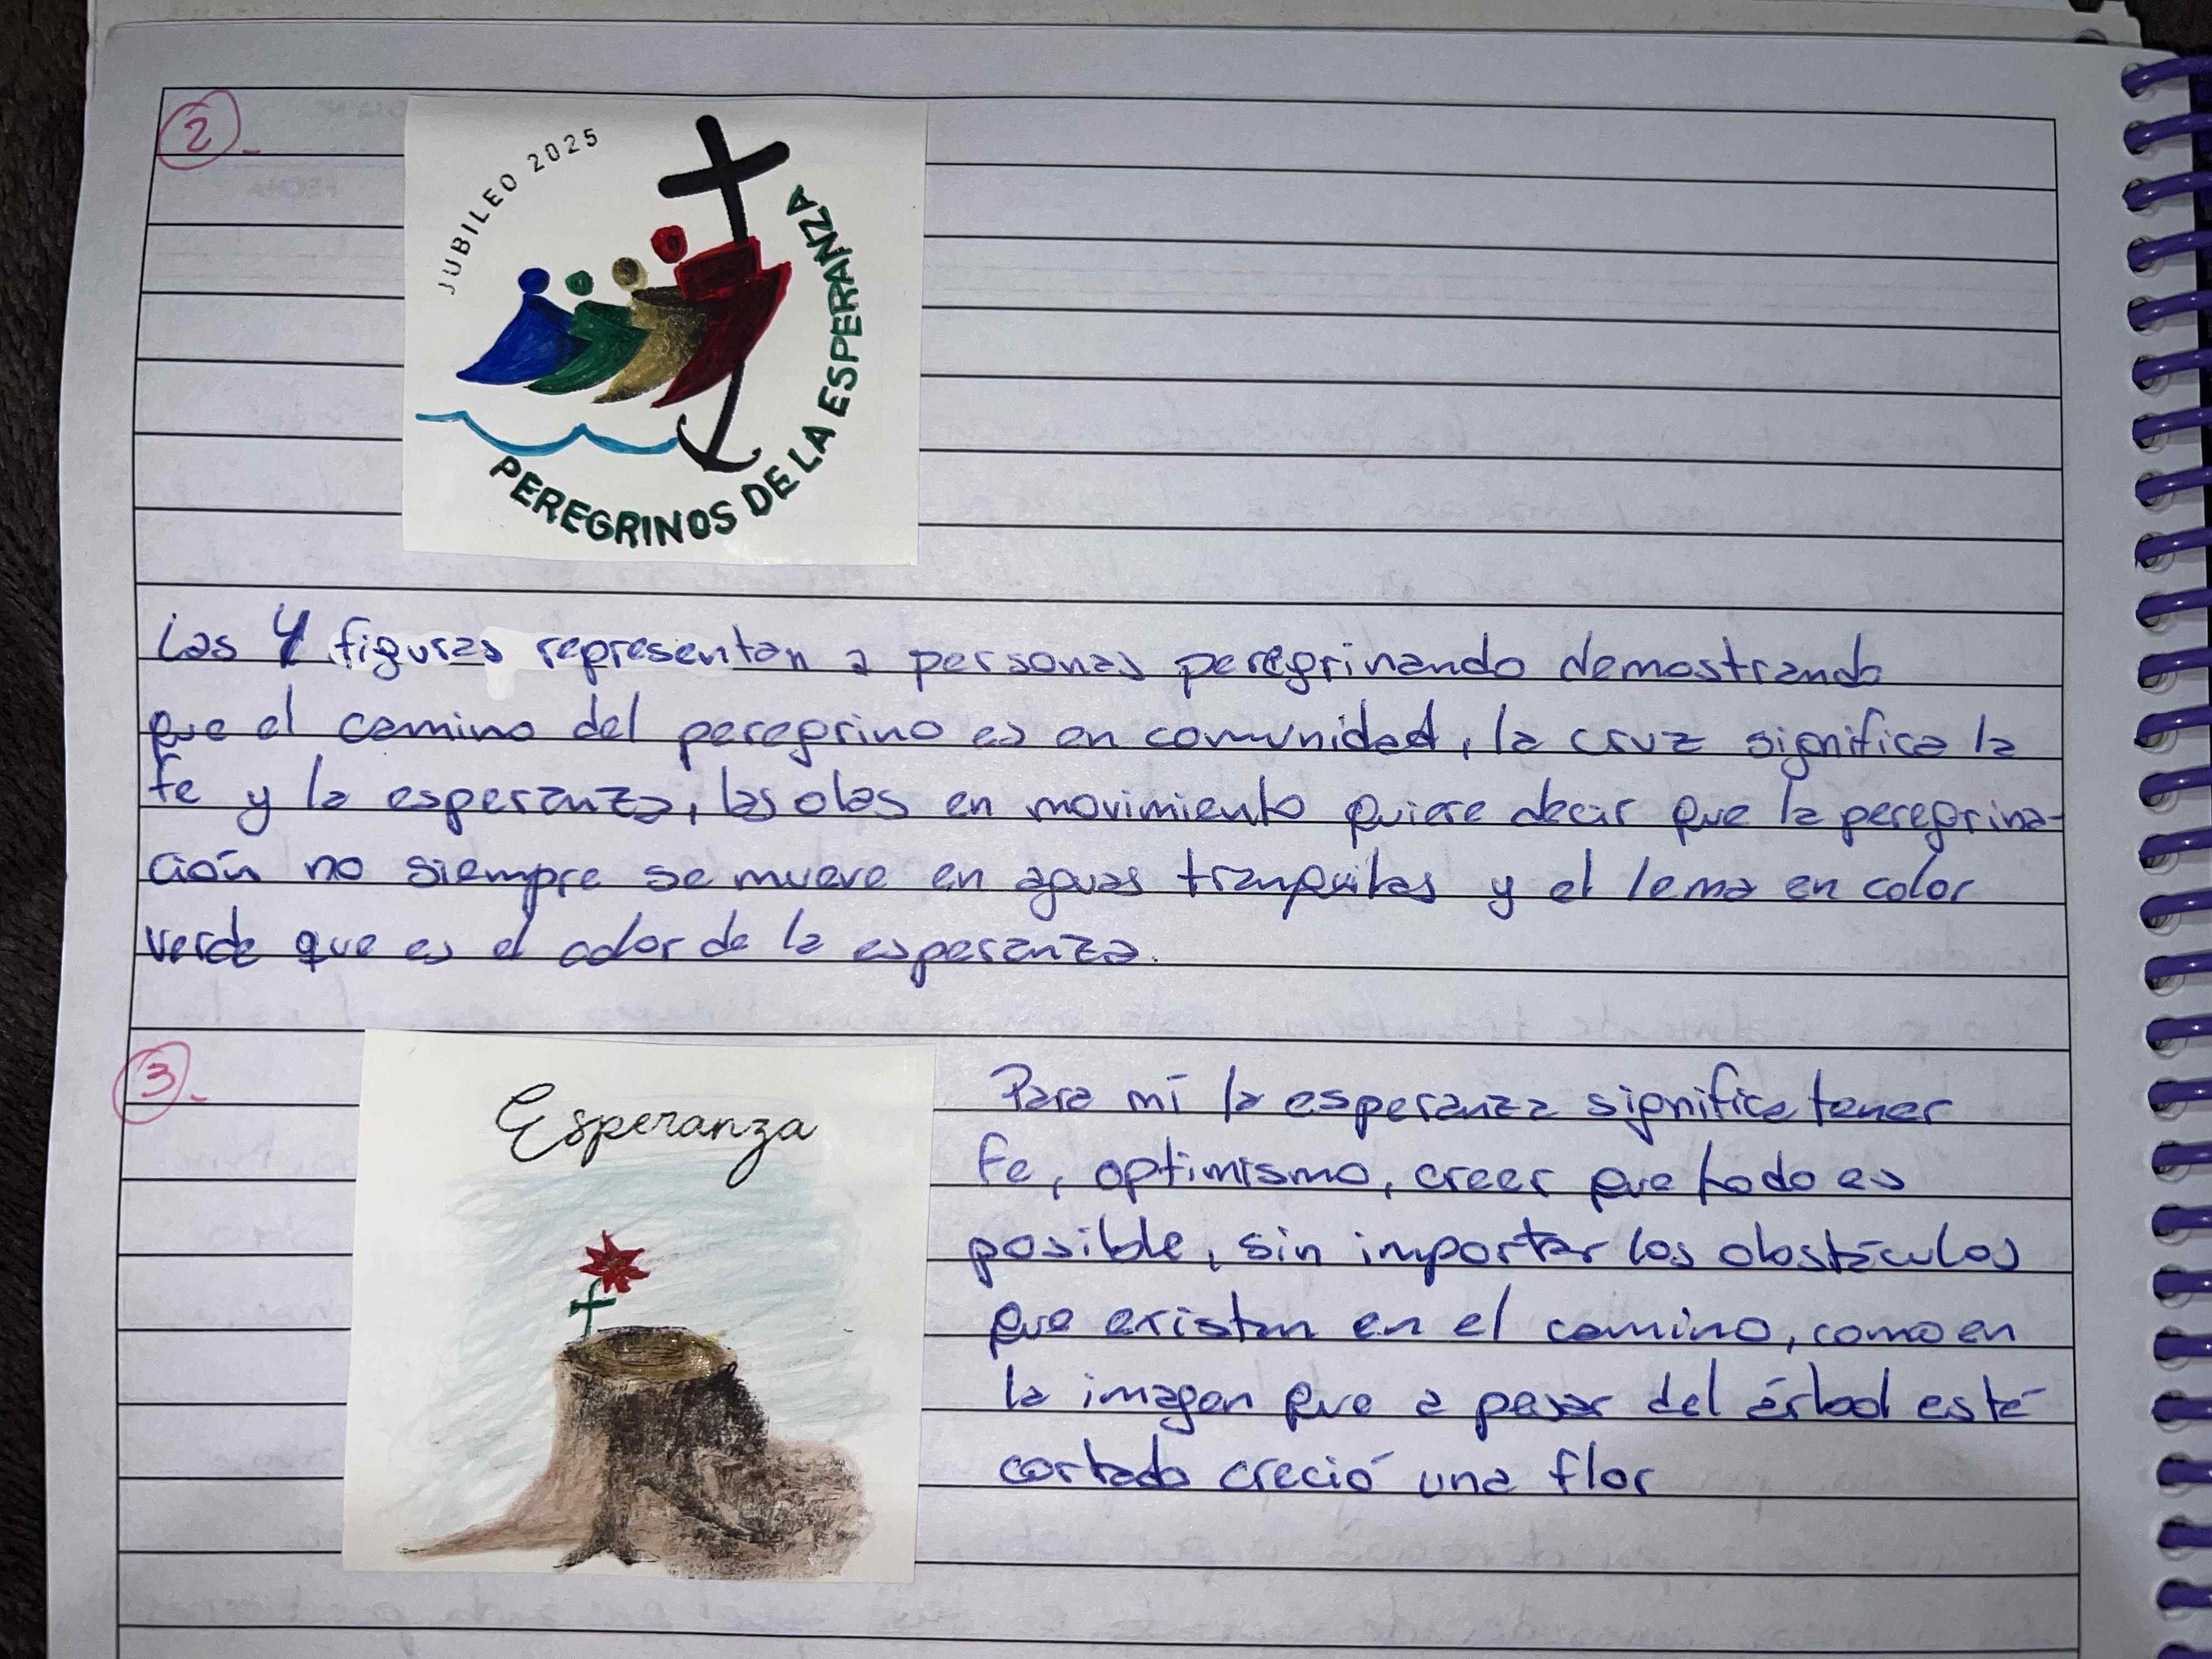 2.-
JUBILEO 2025
PEREGRINOS DE LA ESPERANZA
Las 4 figuras representan a personas peregrinando demostrando
que el camino del peregrino es en comunidad, la cruz significa la
fe y la esperanza, las olas en movimiento quiere decir que la peregrina-
ción no siempre se mueve en aguas tranquilas y el lema en color
verde que es el color de la esperanza.
3.-
Esperanza
Para mí la esperanza significa tener
fe, optimismo, creer que todo es
posible, sin importar los obstáculos
que existan en el camino, como en
la imagen que a pesar del árbol esté
cortado creció una flor